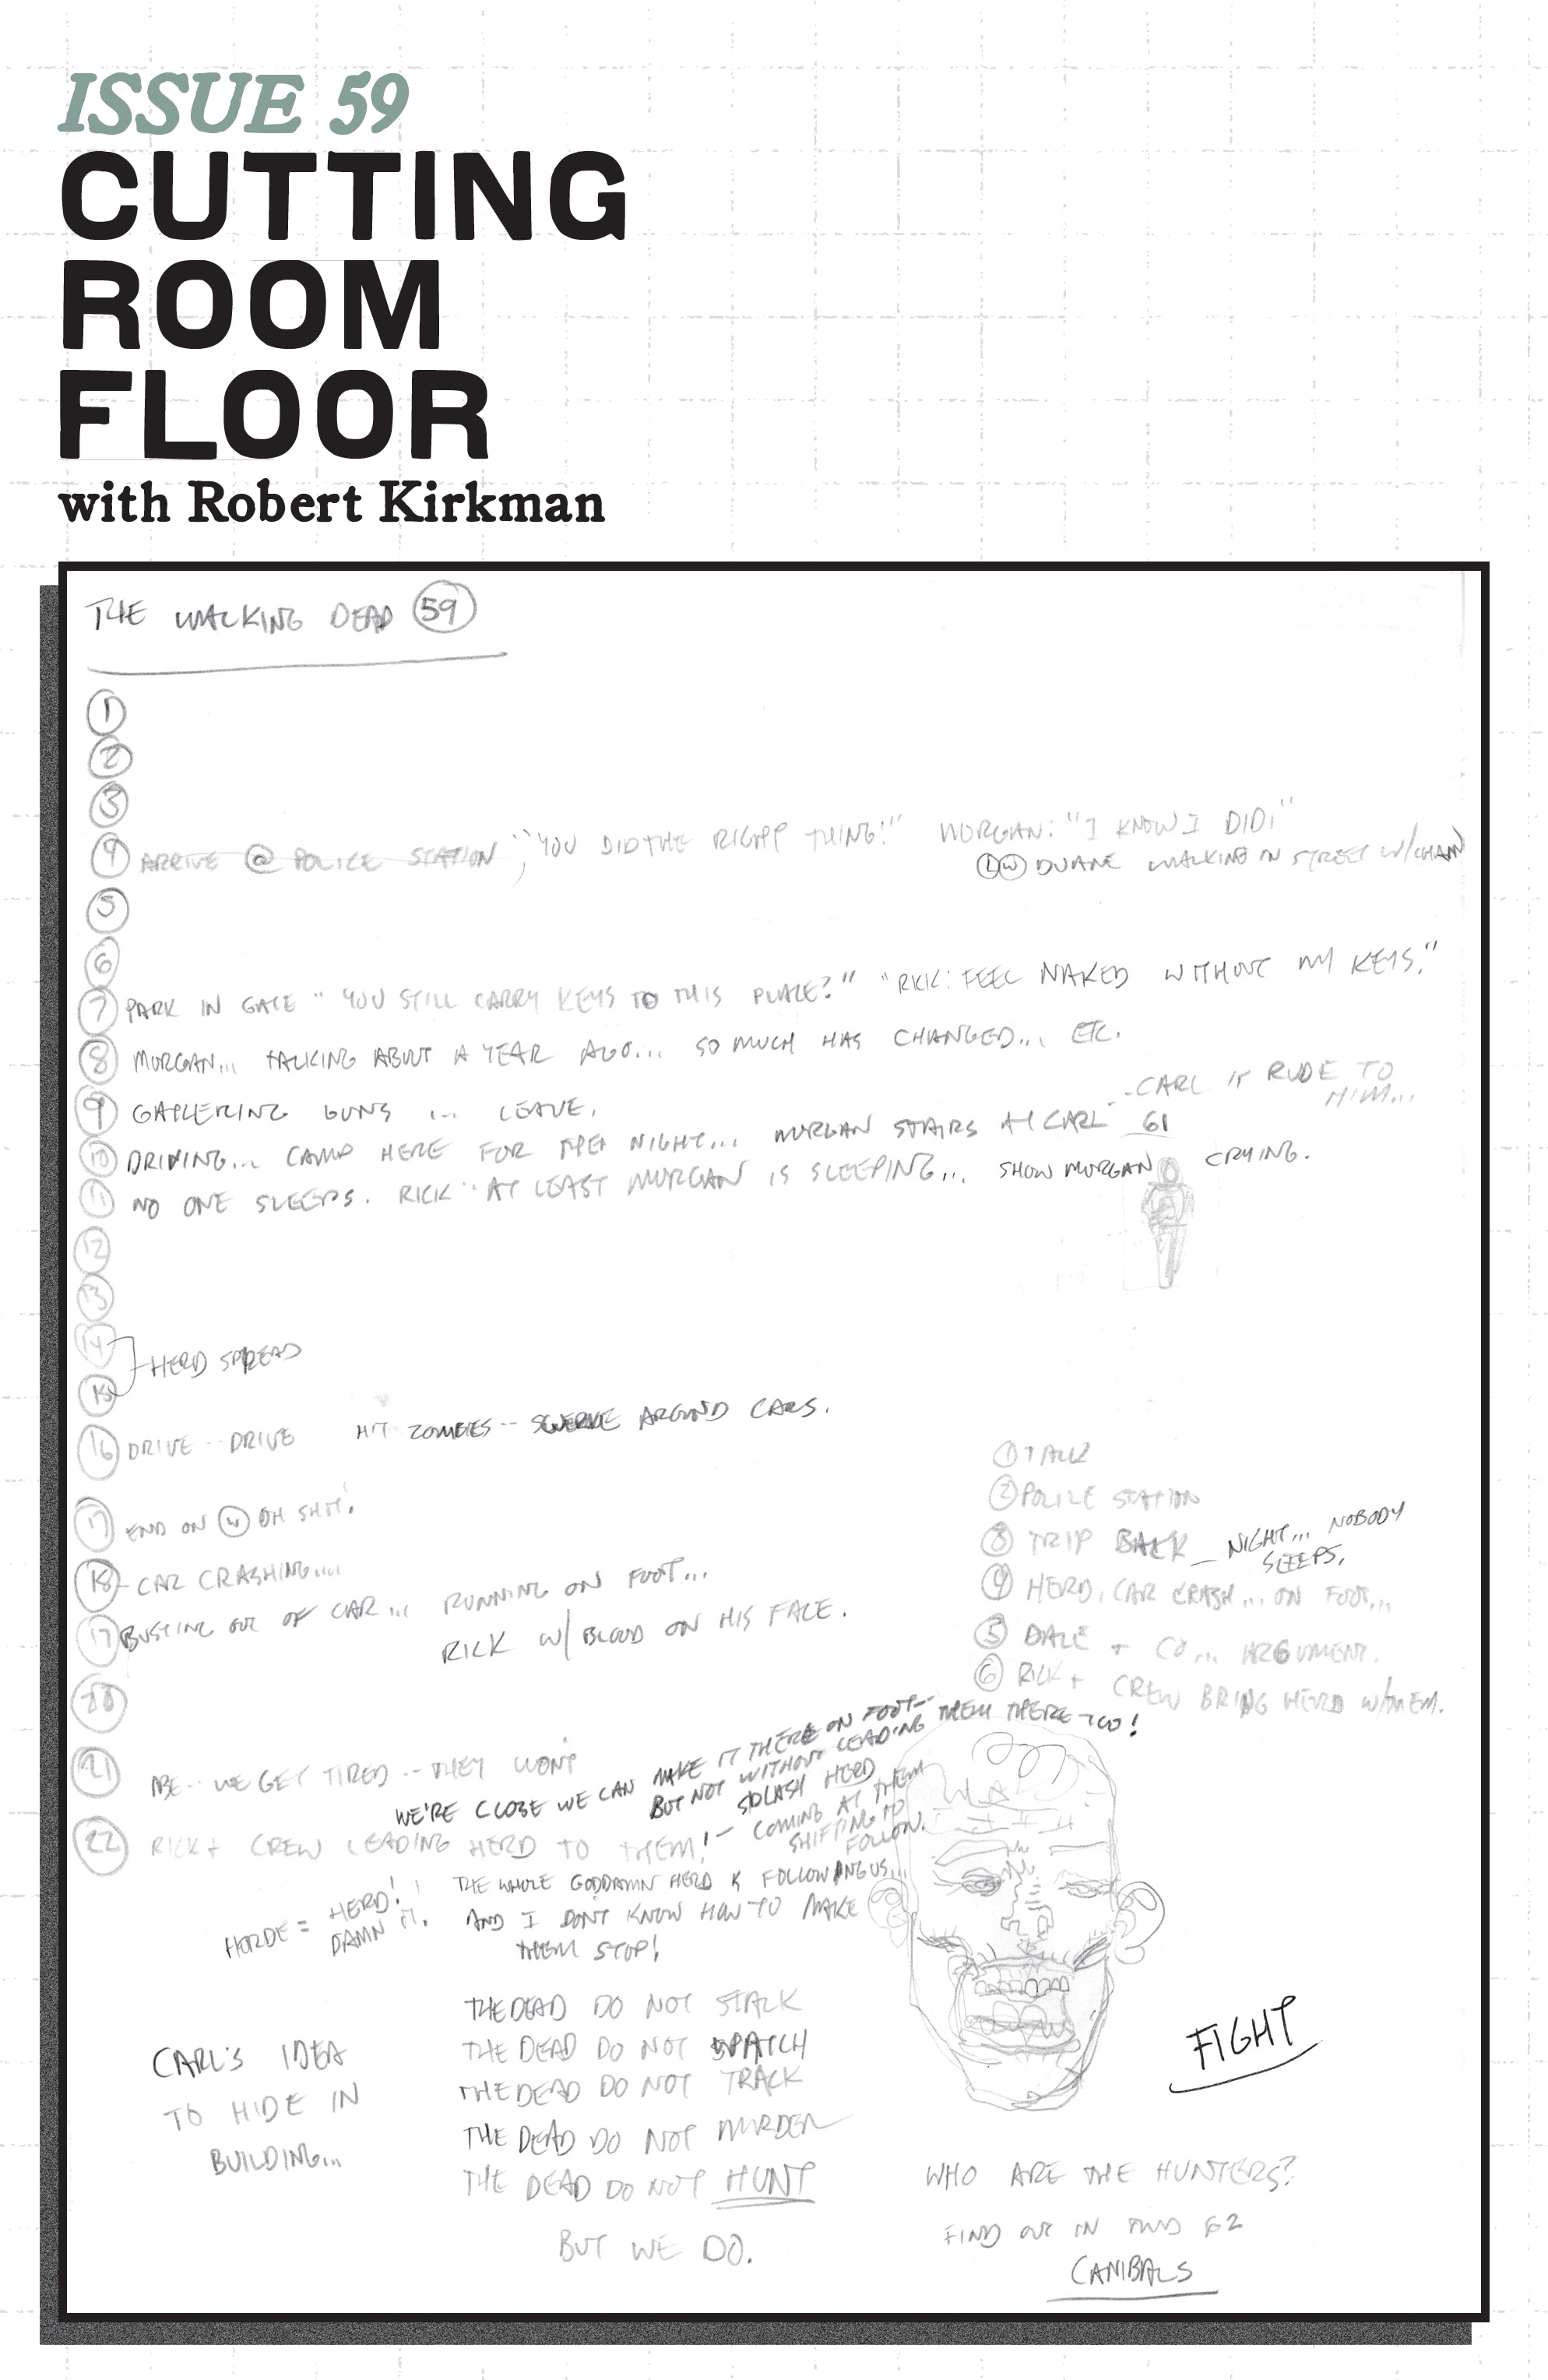 ISSUE 59
CUTTING
ROOM
FLOOR
with Robert Kirkman
THE WALKING DEAD 59
1
2
3
4 ARRIVE @ POLICE STATION, "YOU DID THE RIGHT THING!" MORGAN: "I KNOW I DID!"
LW DUANE WALKING IN STREET W/CHAIN
5
6
7 PARK IN GATE "YOU STILL CARRY KEYS TO THIS PLACE?" "RICK: FEEL NAKED WITHOUT MY KEYS."
8 MORGAN... TALKING ABOUT A YEAR AGO... SO MUCH HAS CHANGED... ETC.
9 GATHERING GUNS ... LEAVE.
-- CARL IS RUDE TO
HIM...
10 DRIVING... CAMP HERE FOR THE NIGHT... MORGAN STAIRS AT CARL 61
11 NO ONE SLEEPS. RICK.. AT LEAST MORGAN IS SLEEPING... SHOW MORGAN CRYING.
12
13
14
15
HERD SPREAD
16 DRIVE -- DRIVE HIT ZOMBIES -- SWERVE AROUND CARS.
17 END ON W OH SHIT!
18 - CAR CRASHING....
19 BUSTING OUT OF CAR... RUNNING ON FOOT...
RICK W/ BLOOD ON HIS FACE.
20
21 ABE -- WE GET TIRED -- THEY WON'T
WE'RE CLOSE WE CAN MAKE IT THERE ON FOOT--
BUT NOT WITHOUT LEADING THEM THERE TOO!
22 RICK + CREW LEADING HERD TO THEM! - SPLASH HERD
COMING AT THEM
SHIFTING TO
FOLLOW.
HORDE = HERD!
DAMN IT.
THE WHOLE GODDAMN HERD IS FOLLOWING US...
AND I DON'T KNOW HOW TO MAKE
THEM STOP!
1 TALK
2 POLICE STATION
3 TRIP BACK - NIGHT... NOBODY
SLEEPS.
4 HERD, CAR CRASH... ON FOOT...
5 DALE + CO... ARGUMENT.
6 RICK + CREW BRING HERD W/THEM.
CARL'S IDEA
TO HIDE IN
BUILDING...
THE DEAD DO NOT STALK
THE DEAD DO NOT WATCH
THE DEAD DO NOT TRACK
THE DEAD DO NOT MURDER
THE DEAD DO NOT HUNT
BUT WE DO.
FIGHT
WHO ARE THE HUNTERS?
FIND OUT IN TWD 62
CANIBALS